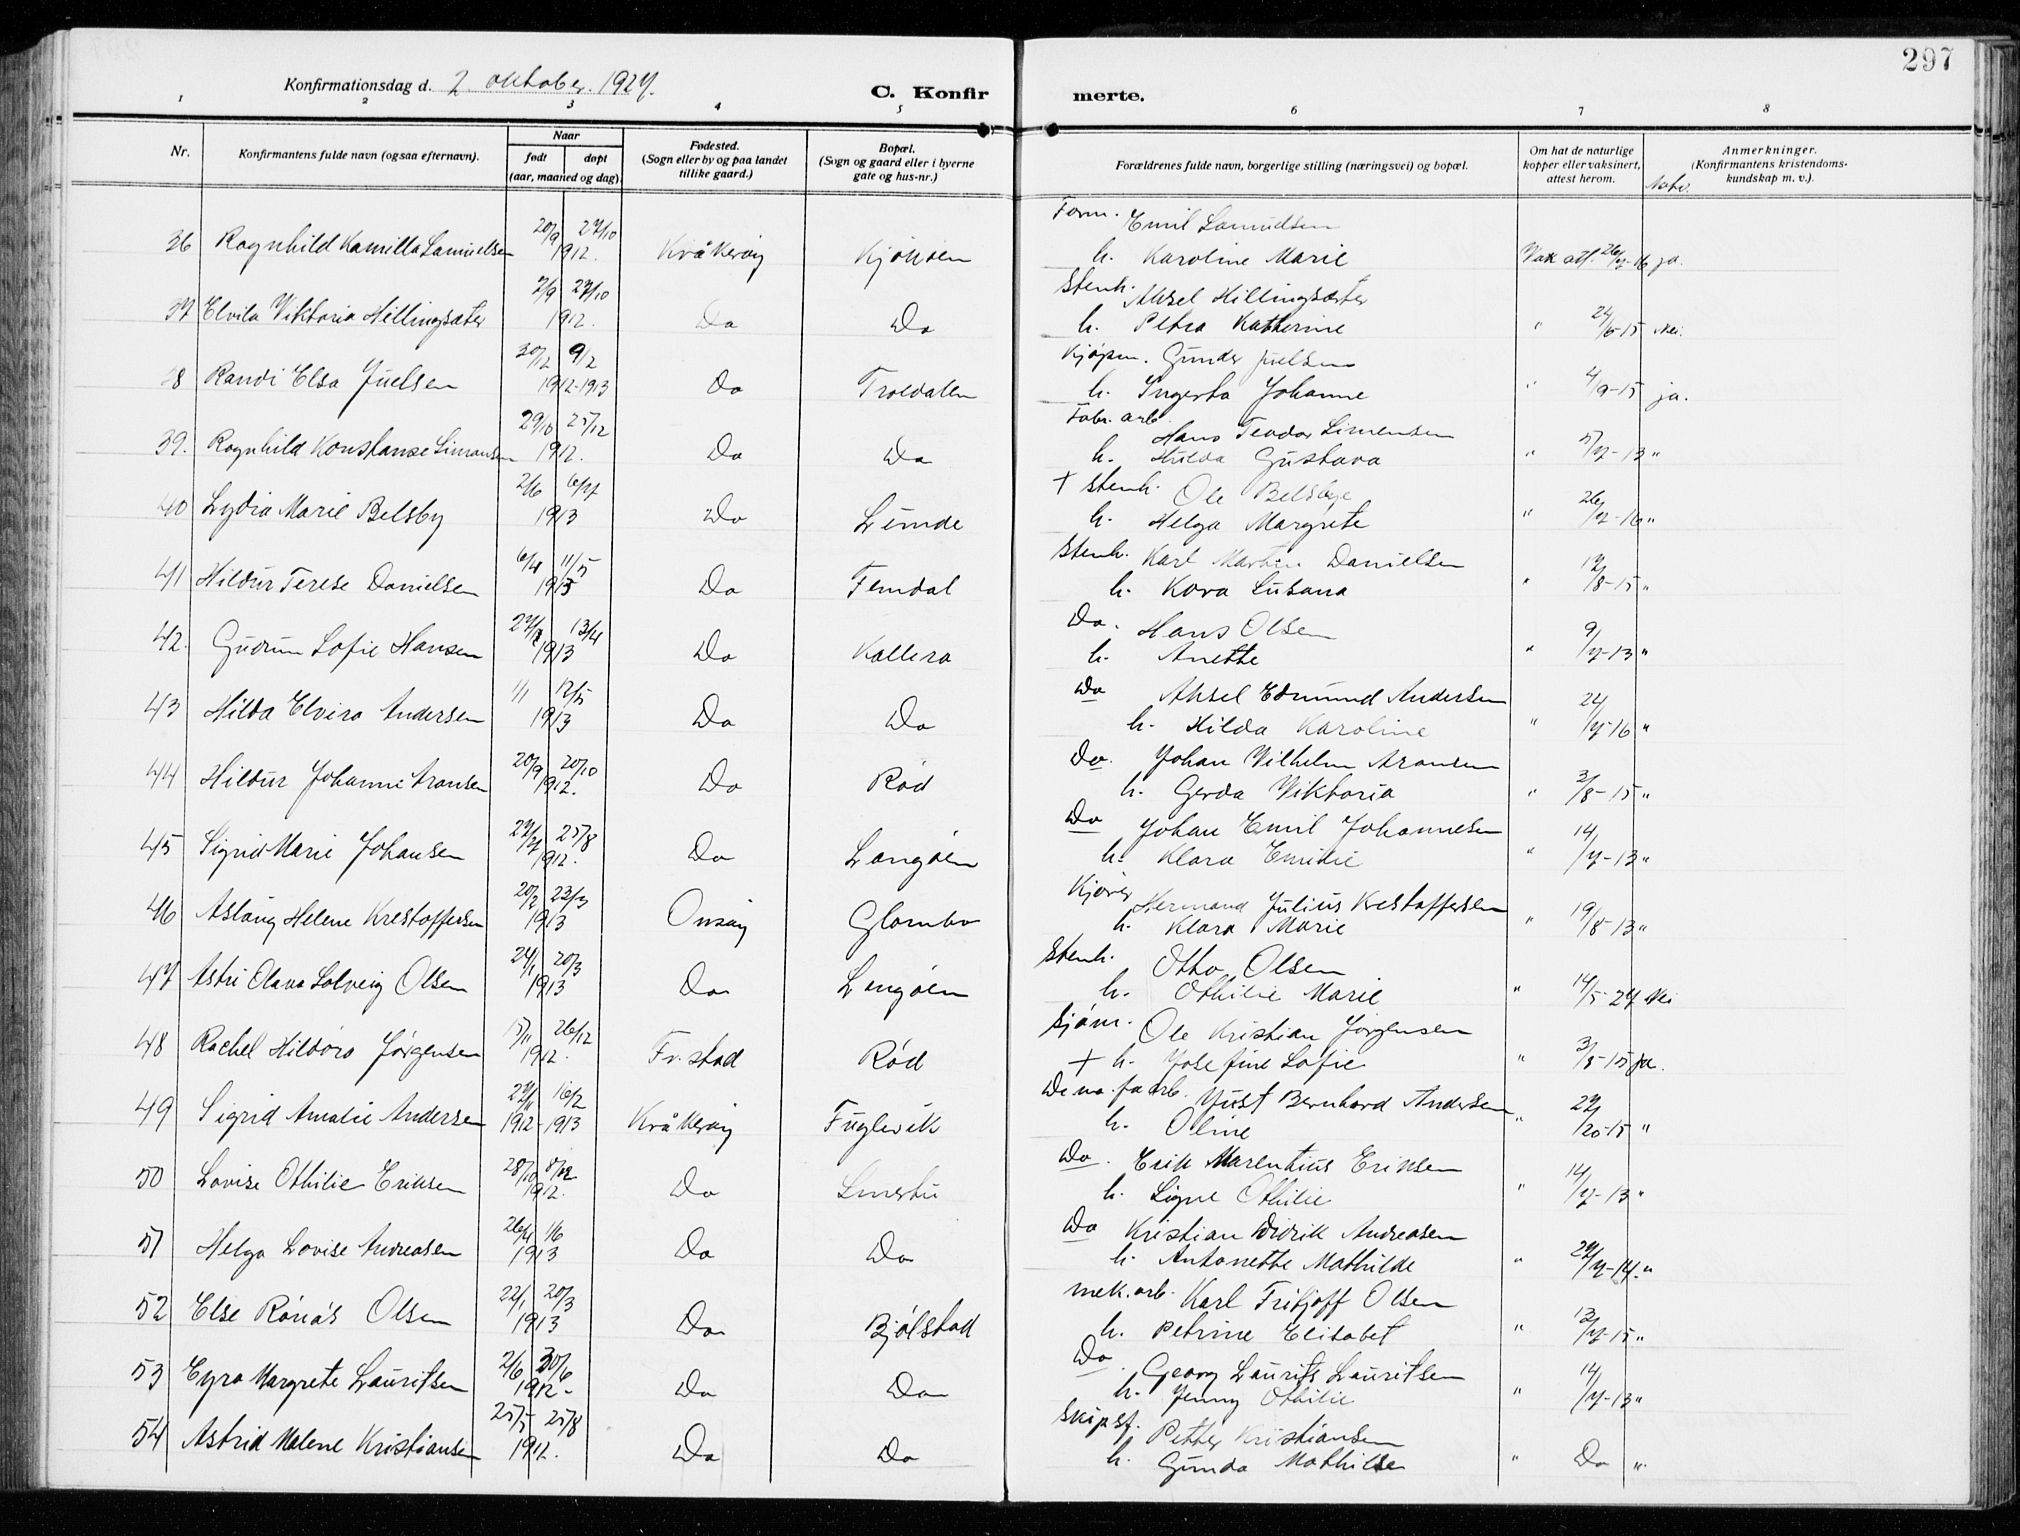 297
Konfirmationsdag d. 2. oktober. 1927.
C. Konfir merte.
1 2 3 4 5 6 7 8
Nr. Konfirmantens fulde navn (ogsaa efternavn). Naar født døpt (aar, maaned og dag). Fødested. (Sogn eller by og paa landet tillike gaard.) Bopæl. (Sogn og gaard eller i byerne gate og hus-nr.) Forældrenes fulde navn, borgerlige stilling (næringsvei) og bopæl. Om hat de naturlige kopper eller vaksinert, attest herom. Anmerkninger. (Konfirmantens kristendoms-kundskap m. v.).
Form. Emil Samuelsen
36 Ragnhild Kamilla Samuelsen 20/9 27/10 1912. Kråkerøy Kjøkøen h. Karoline Marie Vak att. 26/7-16 ja.
Stenh. Aksel Hillingsæter
37 Elvila Viktoria Hillingsæter 2/9 27/10 1912. Do Do h. Petra Katherine " 24/6-15 Nei.
Kjøpm. Gunder Juelsen
38 Randi Elsa Juelsen 30/12 9/2 1912-1913 Do Troldalen h. Ingerta Johanne " 4/9-15 ja.
Fabr. arb. Hans Teodor Simensen
39. Ragnhild Konstanse Simonsen 29/10 25/12 1912. Do Do h. Hulda Gustava " 5/7-13 "
+ Stenh. Ole Belsbye
40 Lydia Marie Belsby 2/6 6/7 1913 Do Lunde h. Helga Margrete " 26/7-16 "
Stenh. Karl Martin Danielsen
41 Hildur Terese Danielsen 6/4 11/5 1913 Do Femdal h. Kora Susana " 12/8-15 "
Do. Hans Olsen
42. Gudrun Sofie Hansen 13/4 1913 Do Kallera h. Anette " 9/7-13 "
Do Aksel Edmund Andersen
43 Hilda Elvira Andersen 1/1 12/5 1913 Do Do h. Hilda Karoline " 24/7-16 "
Do. Johan Vilhelm Aronsen
44 Hildur Johanne Aronsen 20/9 20/10 1912. Do Rød h. Gerda Viktoria " 3/8-15 "
Do Johan Emil Johannesen
45 Sigrid Marie Johansen 27/7 25/8 1912. Do Langøen h. Klara Emilie " 14/7-13 "
Kjører Hermand Julius Krestoffersen
46 Aslaug Helene Krestoffersen 20/2 23/3 1913 Onsøy Glombo h. Klara Marie " 19/8-13 "
Stenh. Otto Olsen
47 Astri Olava Solveig Olsen 24/1 20/3 1913 Do Langøen h. Othilie Marie " 14/5-27 Nei
Sjøm. Ole Kristian Jørgensen
48 Rachel Hildora Jørgensen 15/11 26/12 1912. Fr.stad Rød + h. Josefine Sofie " 3/8-15 ja.
Just Bernhard Andersen
49 Sigrid Amalie Andersen 27/11 16/2 1912-1913 Kråkerøy Fuglevik h. Oline " "
Do. Erik Marentius Eriksen
50 Lovise Othilie Eriksen 28/10 8/12 1912. Do Smertu h. Signe Othilie " 14/7-13 "
Do Kristian Didrik Andreasen
51 Helga Lovise Andreasen 26/4 1/6 1913 Do Do h. Antonette Mathilde " 29/7-14. "
mek. arb. Karl Fritjoff Olsen
52 Else Rønås Olsen 22/1 20/3 1913 Do Bjølstad h. Petrine Elisabet " 13/7-15 "
Do. Georg Laurits Lauritsen
53 Eyra Margrete Lauritsen 2/6 30/6 1912- Do Do h. Jenny Othilie " 14/7-13 "
Skipsf. Petter Kristiansen
54 Astrid Malene Kristiansen 25/5 25/8 1912. Do Do h. Gunda Mathilde " Do "